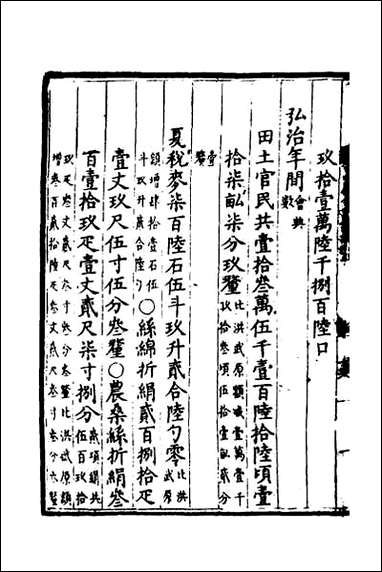 玖拾壹萬陸千捌百陸口
弘治年間會典數
田土官民共壹拾叁萬伍千壹百陸拾陸頃壹
拾柒畝柒分玖釐比洪武原額減壹萬壹千玖拾叁頃伍拾壹畝貳分
壹釐
夏稅麥柒百陸石伍斗玖升貳合陸勺零比洪武原
額增肆拾壹石伍斗玖升貳合陸勺○絲綿折絹貳百捌拾疋
壹丈玖尺伍寸伍分叁釐○農桑絲折絹叁
百壹拾玖疋壹丈貳尺柒寸捌分貳項絹共伍百玖拾
玖疋叁丈貳尺叁寸叁分叁釐比洪武原額增叁百貳拾陸疋叁丈貳尺叁寸叁分叁釐